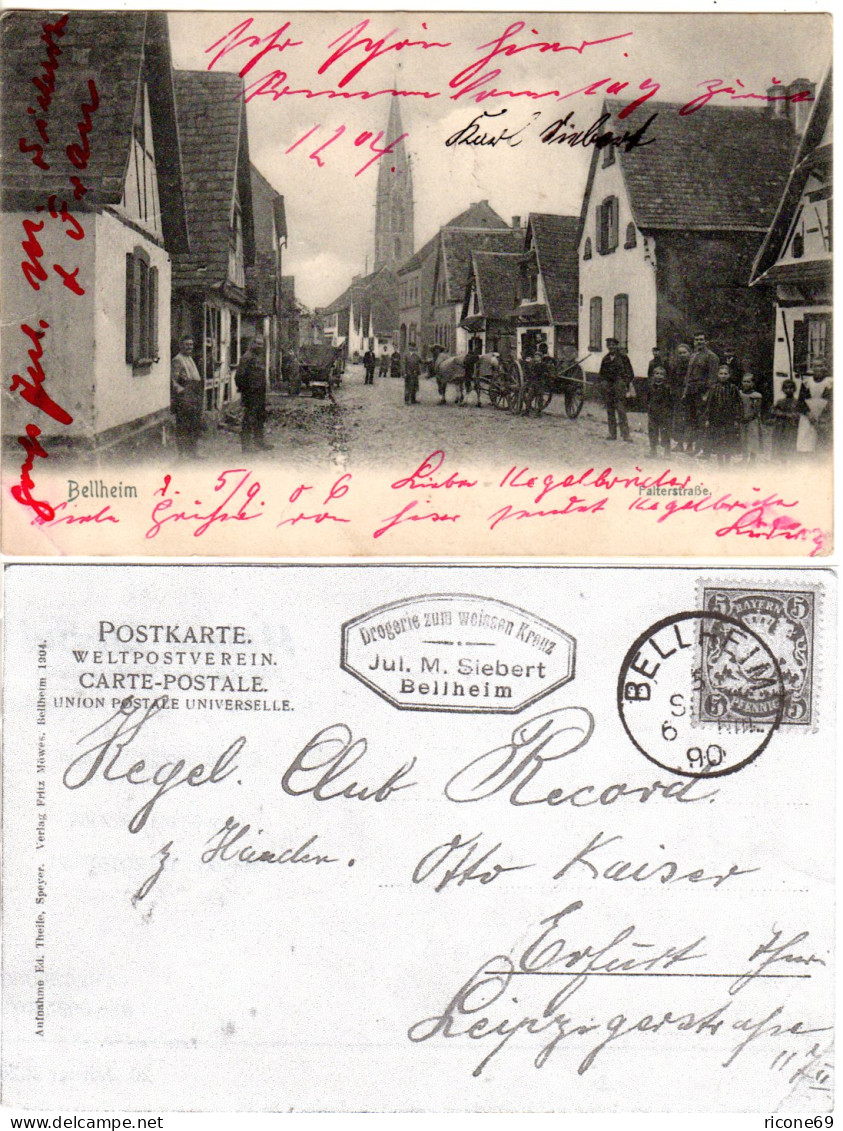 Sehr schön hier
Komme Sonntag zurück
1204.
Karl Siebert
Jul. M. Siebert
& Frau
Bellheim d. 5/9 06 Lieber Kegelbrüder
Falterstraße.
Viele Grüße von hier sendet Kegelbruder
Ludwig
POSTKARTE.
WELTPOSTVEREIN.
CARTE-POSTALE.
UNION POSTALE UNIVERSELLE.
Drogerie zum weissen Kreuz
Jul. M. Siebert
Bellheim
BAYERN
5 5
5 PFENNIG 5
BELLHEIM
5
6
90
Kegel. Club Record.
z Händen. Otto Kaiser
Erfurt Thür
Leipzigerstraße
Aufnahme Ed. Theile, Speyer. Verlag Fritz Möwes, Bellheim 1904.
ricone69